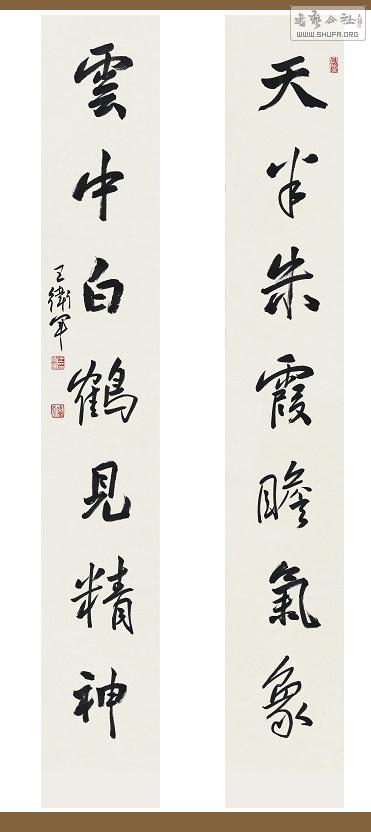 天半朱霞瞻氣象
雲中白鶴見精神
王衛軍
書藝公社
WWW.SHUFA.ORG